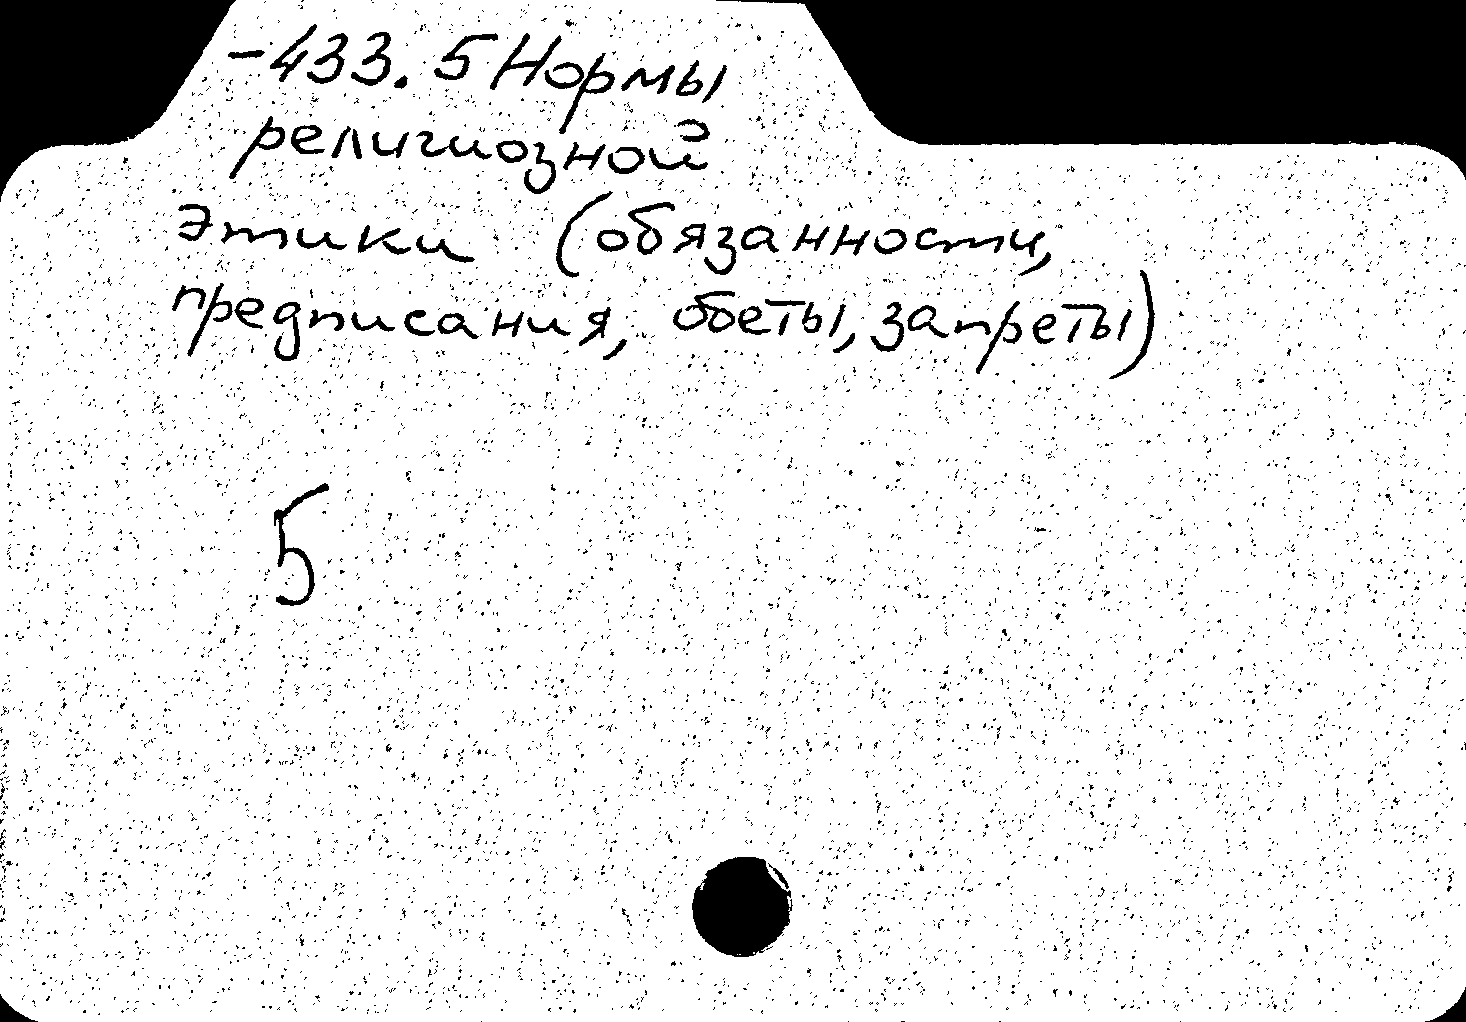 -433.5 Нормы
религиозной
этики (обязанности,
предписания, обеты, запреты)
5